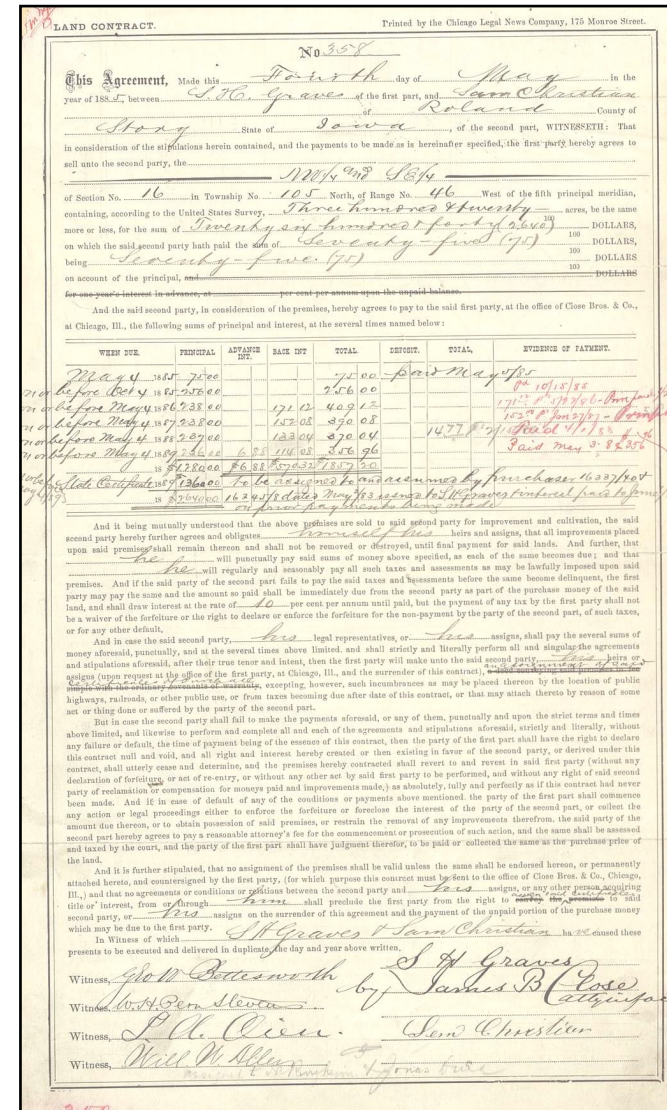 LAND CONTRACT.
Printed by the Chicago Legal News Company, 175 Monroe Street.
No 358
This Agreement, Made this Fourth day of May in the
year of 1885, between S. H. Graves of the first part, and Sam Christian
of Roland County of
Story State of Iowa, of the second part, WITNESSETH: That
in consideration of the stipulations herein contained, and the payments to be made as is hereinafter specified, the first party hereby agrees to
sell unto the second party, the
NW1/4 and SE1/4
of Section No. 16 in Township No. 105 North, of Range No. 46 West of the fifth principal meridian,
containing, according to the United States Survey, Three hundred & twenty acres, be the same
more or less, for the sum of Twenty six hundred & forty (2640) 100 DOLLARS,
on which the said second party hath paid the sum of Seventy-five (75) 100 DOLLARS,
being Seventy-five. (75) 100
on account of the principal, and DOLLARS
for one year's interest in advance, at per cent per annum upon the unpaid balance.
And the said second party, in consideration of the premises, hereby agrees to pay to the said first party, at the office of Close Bros. & Co.,
at Chicago, Ill., the following sums of principal and interest, at the several times named below:
WHEN DUE. PRINCIPAL ADVANCE INT. BACK INT TOTAL. DEPOSIT. TOTAL, EVIDENCE OF PAYMENT.
May 4 1885 7500 7500 paid May 5/85
n or before Oct 4 1885 25600 25600 Pd 10/15/85
n or before May 4 1886 23800 171 12 409 12
n or before May 4 1887 23800 152 08 390 08
n or before May 4 1888 23700 133 04 370 04 Paid
n or before May 4 1889 23600 6 88 114 08 356 96 Paid May 3. 8 $356 96
18 $128000 $6.88 $570 32 1857 20
State Certificate 188 $136000 to be assigned to and assumed by purchaser 16337/40 &
18 $264000 16345/8 dated Nov /83 issued to S H Graves & interest paid to June /
on prior payments being made
And it being mutually understood that the above premises are sold to said second party for improvement and cultivation, the said
second party hereby further agrees and obligates himself his heirs and assigns, that all improvements placed
upon said premises, shall remain thereon and shall not be removed or destroyed, until final payment for said lands. And further, that
he will punctually pay said sums of money above specified, as each of the same becomes due; and that
he will regularly and seasonably pay all such taxes and assessments as may be lawfully imposed upon said
premises. And if the said party of the second part fails to pay the said taxes and assessments before the same become delinquent, the first
party may pay the same and the amount so paid shall be immediately due from the second party as part of the purchase money of the said
land, and shall draw interest at the rate of 10 per cent per annum until paid, but the payment of any tax by the first party shall not
be a waiver of the forfeiture or the right to declare or enforce the forfeiture for the non-payment by the party of the second part, of such taxes,
or for any other default,
And in case the said second party, his legal representatives, or his assigns, shall pay the several sums of
money aforesaid, punctually, and at the several times above limited, and shall strictly and literally perform all and singular the agreements
and stipulations aforesaid, after their true tenor and intent, then the first party will make unto the said second party, his heirs or
assigns (upon request at the office of the first party, at Chicago, Ill., and the surrender of this contract),
simple with the ordinary covenants of warranty, excepting, however, such incumbrances as may be placed thereon by the location of public
highways, railroads, or other public use, or from taxes becoming due after date of this contract, or that may attach thereto by reason of some
act or thing done or suffered by the party of the second part.
But in case the second party shall fail to make the payments aforesaid, or any of them, punctually and upon the strict terms and times
above limited, and likewise to perform and complete all and each of the agreements and stipulatons aforesaid, strictly and literally, without
any failure or default, the time of payment being of the essence of this contract, then the party of the first part shall have the right to declare
this contract null and void, and all right and interest hereby created or then existing in favor of the second party, or derived under this
contract, shall utterly cease and determine, and the premises hereby contracted shall revert to and revest in said first party (without any
declaration of forfeiture, or act of re-entry, or without any other act by said first party to be performed, and without any right of said second
party of reclamation or compensation for moneys paid and improvements made,) as absolutely, fully and perfectly as if this contract had never
been made. And if in case of default of any of the conditions or payments above mentioned. the party of the first part shall commence
any action or legal proceedings either to enforce the forfeiture or foreclose the interest of the party of the second part, or collect the
amount due thereon, or to obtain possession of said premises, or restrain the removal of any improvements therefrom, the said party of the
second part hereby agrees to pay a reasonable attorney's fee for the commencement or prosecution of such action, and the same shall be assessed
and taxed by the court, and the party of the first part shall have judgment therefor, to be paid or collected the same as the purchase price of
the land.
And it is further stipulated, that no assignment of the premises shall be valid unless the same shall be endorsed hereon, or permanently
attached hereto, and countersigned by the first party, (for which purpose this contract must be sent to the office of Close Bros. & Co., Chicago,
Ill.,) and that no agreements or conditions or relations between the second party and his assigns, or any other person acquiring
title or interest, from or through him shall preclude the first party from the right to convey the premises to said
second party, or his assigns on the surrender of this agreement and the payment of the unpaid portion of the purchase money
which may be due to the first party.
In Witness of which S H Graves & Sam Christian have caused these
presents to be executed and delivered in duplicate, the day and year above written,
S H Graves
Witness, Geo W Bettesworth by James B Close
Witness, W. H. Penn Steven atty in fac
Witness, L. A. Oien. Sem Christian
Witness, Will W Allen